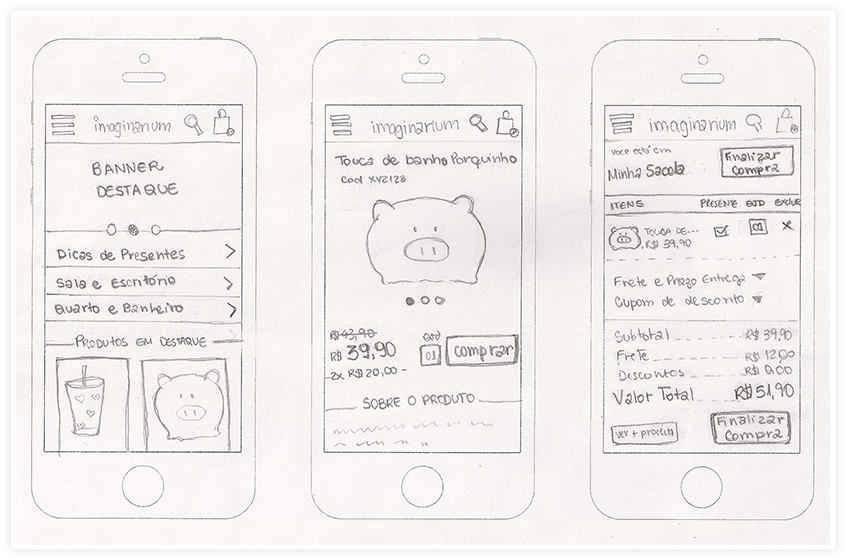 imaginarium
BANNER
DESTAQUE
Dicas de Presentes
Sala e Escritório
Quarto e Banheiro
PRODUTOS EM DESTAQUE
imaginarium
Touca de banho Porquinho
Cod XYZ123
R$ 43,90
R$ 39,90
2x R$ 20,00
QTD
01
comprar
SOBRE O PRODUTO
imaginarium
Você está em
Minha Sacola
Finalizar
Compra
ITENS PRESENTE QTD EXCLUIR
TOUCA DE...
R$ 39,90
01
Frete e Prazo Entrega
Cupom de desconto
Subtotal R$ 39,90
Frete R$ 12,00
Descontos R$ 0,00
Valor Total R$ 51,90
ver + produtos
Finalizar
Compra